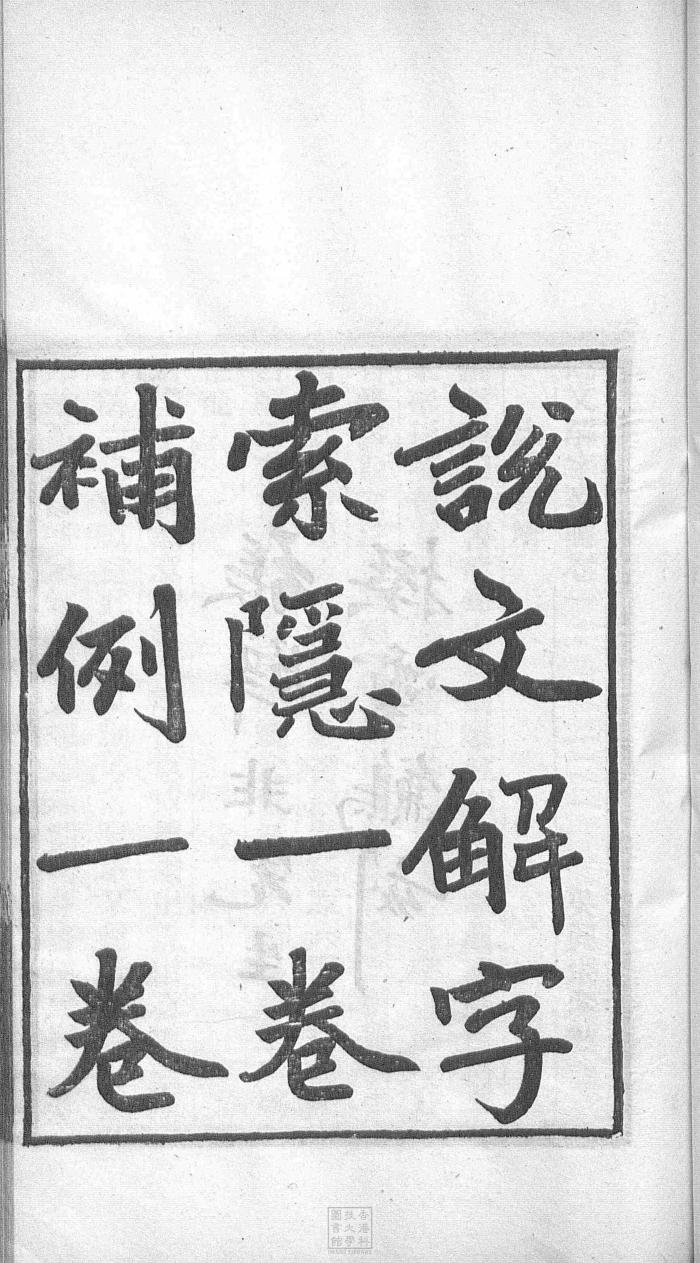 說文解字
索隱一卷
補例一卷
香港科
技大學
圖書館